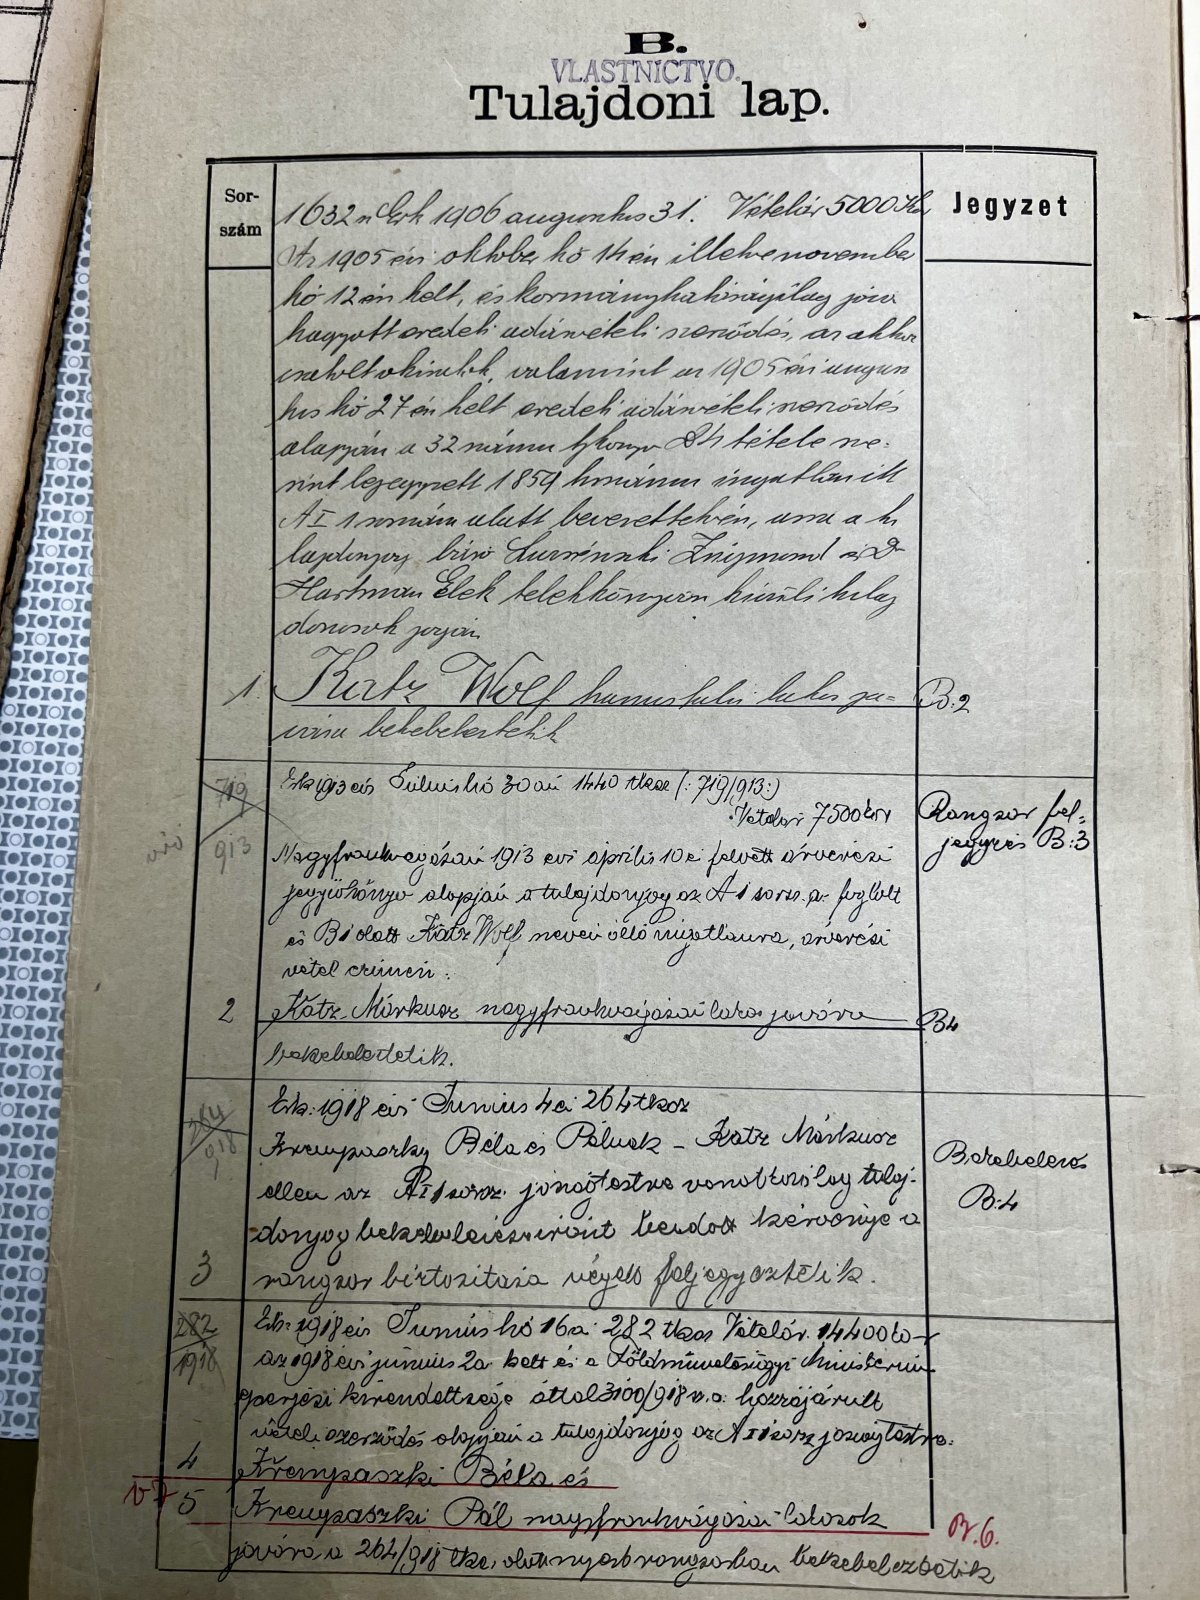 B.
VLASTNICTVO.
Tulajdoni lap.
Sor-
szám
Jegyzet
1632 Érk 1906 augusztus 31. Vételár 5000 Ko
Az 1905 évi oktober hó 14 én illetve november
hó 12 én kelt, és kormányhatóságilag jóvá
hagyott eredeti adásvételi szerződés, az ahhoz
csatolt okiratok, valamint az 1905 évi augus
tus hó 27 én kelt eredeti adásvételi szerződés
alapján a 32 számu tjkönyv 84 tétele sze-
rint lejegyzett 1859 hrszámu ingatlan itt
A I 1 sorszám alatt bevezettetvén, arra a tu
lajdonjog, báró Zsigmond és Dr
Hartman Elek telekkönyvön kivüli tulaj
donosok jogán
1. Katz Wolf lakos ja-
vára bekebeleztetik
B:2
719
913
Érk 1913 évi Julius hó 30 án 1440 tksz (: 719/913:)
Vételár 7500 kor
Rangsor fel-
jegyzés B:3
Nagyfrankvágásán 1913 évi április 10 éi felvett árverési
jegyzőkönyv alapján a tulajdonjog az A I sorsz. a. foglalt
és B 1 alatt Katz Wolf nevén álló ingatlanra, árverési
vétel czimén.
2 Katz Márkusz nagyfrankvágásai lakos javára
B4
bekebeleztetik.
264
918
Érk: 1918 évi Junius 4 éi 264 tksz
Krempaszky Béla és Pálnak - Katz Márkusz
ellen az A I 1 sorsz. jószágtestre vonatkozólag tulaj-
donjog bekebelezés iránt beadott kérvénye a
3 rangsor biztositása végett feljegyeztetik.
Bekebelezés
B:4
282
1918
Érk: 1918 évi Junius hó 16 á. 282 tksz Vételár 14400 kor
az 1918 évi junius 2 á. kelt és a Földmüvelésügyi Ministerium
eperjesi kirendeltsége által 3100/918 sz. a. hozzájárult
vételi szerződés alapján a tulajdonjog az A I 1 sorsz jószágtestre.
4 Krempaszki Béla és
5 Krempaszki Pál nagyfrankvágásai lakosok
B.6.
javára a 264/918 tksz. alatt nyert rangsorban bekebeleztetik